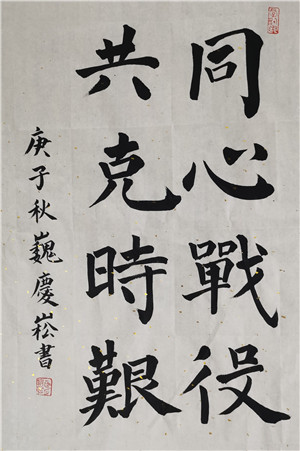 同心戰役
共克時艱
庚子秋巍慶崧書